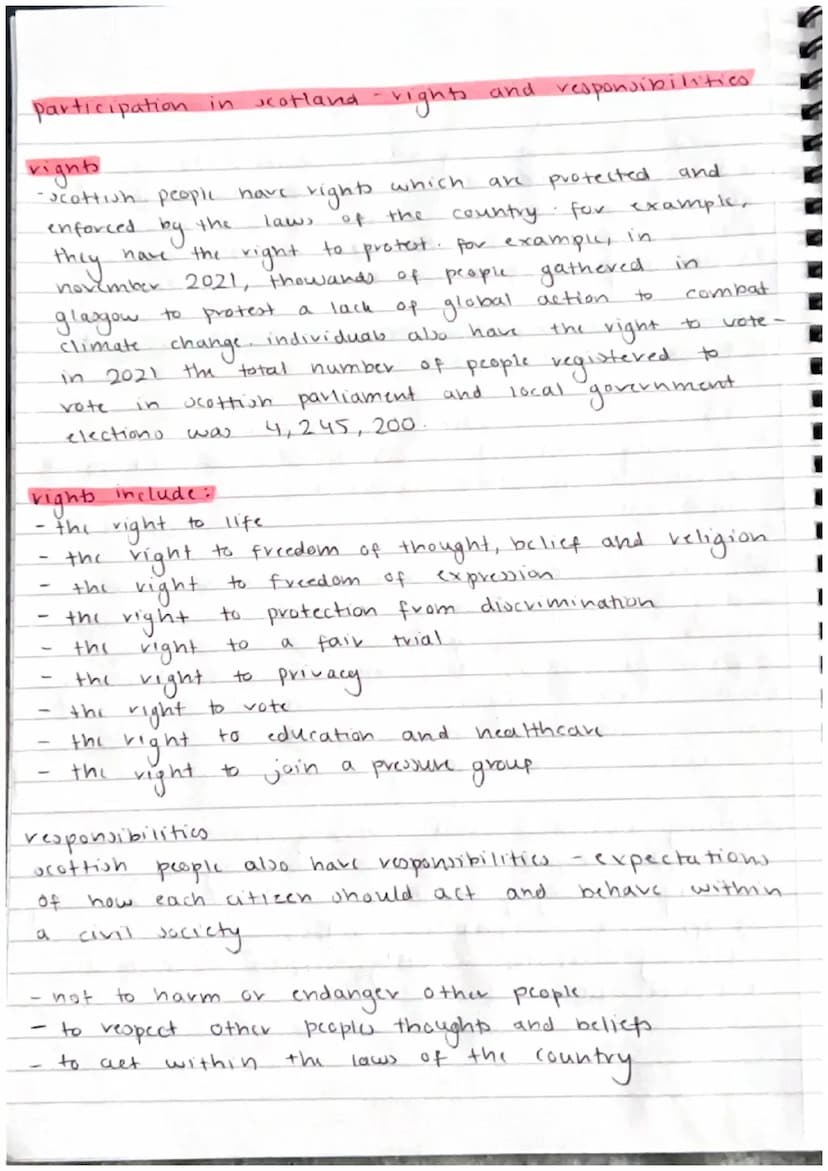 participation in scotland - rights and responsibilities
rights
- scottish people have rights which are protected and
enforced by the laws of the country. for example,
they have the right to protest. for example, in
november 2021, thousands of people gathered in
glasgow to protest a lack of global action to combat
climate change. individuals also have the right to vote -
in 2021 the total number of people registered to
vote in scottish parliament and local government
elections was 4,245,200.
rights include:
- the right to life
- the right to freedom of thought, belief and religion
- the right to freedom of expression
- the right to protection from discrimination
- the right to a fair trial
- the right to privacy
- the right to vote
- the right to education and healthcare
- the right to join a pressure group
responsibilities
scottish people also have responsibilities - expectations
of how each citizen should act and behave within
a civil society
- not to harm or endanger other people
- to respect other peoples thoughts and beliefs
- to act within the laws of the country